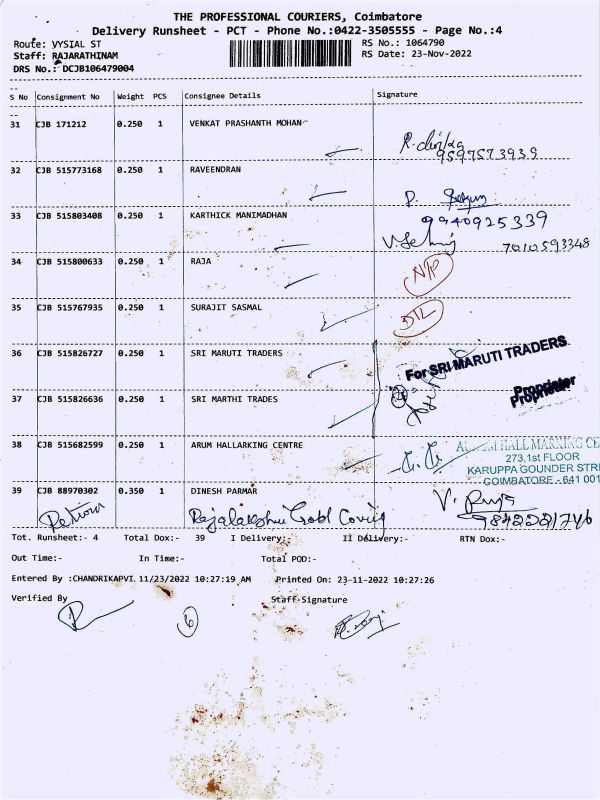 THE PROFESSIONAL COURIERS, Coimbatore
Delivery Runsheet - PCT - Phone No.:0422-3505555 - Page No.:4
Route: VYSIAL ST
RS No.: 1064790
Staff: RAJARATHINAM
RS Date: 23-Nov-2022
DRS No.: DCJB106479004
S No Consignment No Weight PCS Consignee Details Signature
31 CJB 171212 0.250 1 VENKAT PRASHANTH MOHAN
9597573939
32 CJB 515773168 0.250 1 RAVEENDRAN
33 CJB 515803408 0.250 1 KARTHICK MANIMADHAN
9940925339
7010593348
34 CJB 515800633 0.250 1 RAJA N/P
35 CJB 515767935 0.250 1 SURAJIT SASMAL DTL
36 CJB 515826727 0.250 1 SRI MARUTI TRADERS For SRI MARUTI TRADERS
37 CJB 515826636 0.250 1 SRI MARTHI TRADES
Proprietor
38 CJB 515682599 0.250 1 ARUM HALLARKING CENTRE
HALL MARKING CE
273,1st FLOOR
KARUPPA GOUNDER STRE
COIMBATORE - 641 001
39 CJB 88970302 0.350 1 DINESH PARMAR
Return Rajalakshmi Gold Covering
Tot. Runsheet:- 4 Total Dox:- 39 I Delivery:- II Delivery:- RTN Dox:-
Out Time:- In Time:- Total POD:-
Entered By :CHANDRIKAPVI 11/23/2022 10:27:19 AM Printed On: 23-11-2022 10:27:26
Verified By Staff Signature
6